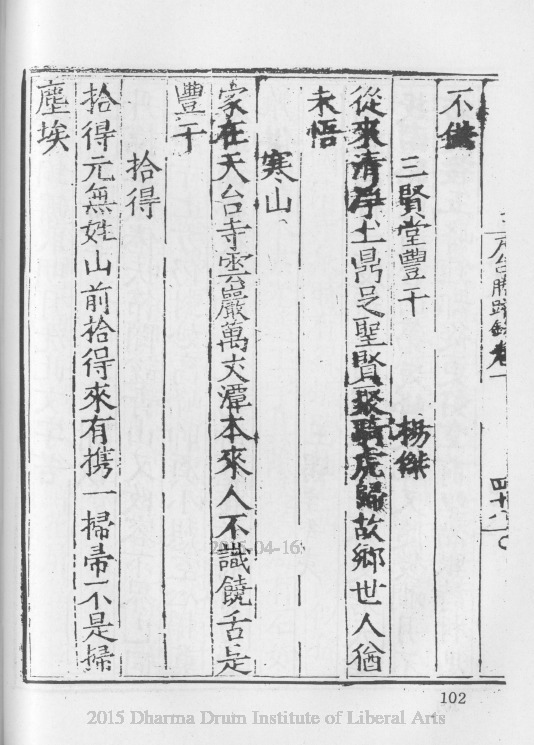 天台勝蹟錄卷一 四十八
不
三賢堂豐干 楊傑
從來清淨土鼎足聖賢聚騎虎歸故鄉世人猶
未悟
寒山
家在天台寺雲巖萬丈潭本來人不識饒舌是
豐干
拾得
拾得元無姓山前拾得來有携一掃帚不是掃
塵埃
102
2015 Dharma Drum Institute of Liberal Arts